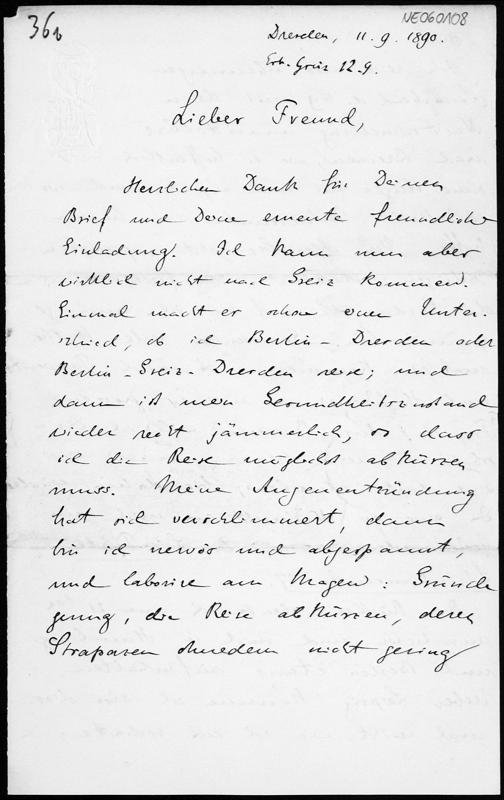 36b
NE060108
Dresden, 11. 9. 1890.
Erh. Greiz 12.9.
Lieber Freund,
Herzlichen Dank für Deinen
Brief und Deine erneute freundliche
Einladung. Ich kann nun aber
wirklich nicht nach Greiz kommen.
Einmal macht es schon einen Unter-
schied, ob ich Berlin-Dresden oder
Berlin-Greiz-Dresden reise; und
dann ist mein Gesundheitszustand
wieder recht jämmerlich, so dass
ich die Reise möglichst abkürzen
muss. Meine Augenentzündung
hat sich verschlimmert, dann
bin ich nervös und abgespannt,
und laborire am Magen: Gründe
genug, die Reise abkürzen, deren
Strapazen ohnedem nicht gering